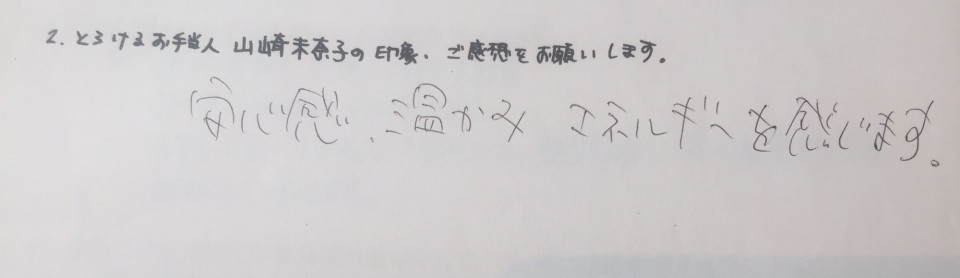 2. とろけるお手当人 山崎未奈子の印象、ご感想をお願いします。
安心感、温かみ エネルギーを感じます。